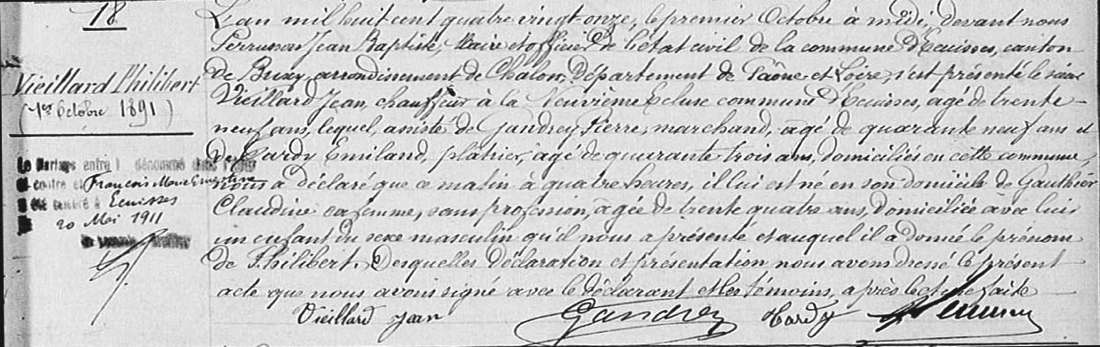 18
Vieillard Philibert
(1er Octobre 1891)
Le Mariage entre l dénommé dans l'acte
ci-contre et François Marie Ernestine
a été célébré à Ecuisses
20 Mai 1911
L'an mil huit cent quatre vingt-onze, le premier Octobre à midi, devant nous
Perrusson Jean Baptiste, Maire et officier de l'état civil de la commune d'Ecuisses, canton
de Buxy, arrondissement de Chalon, Département de Saône et Loire, s'est présenté le sieur
Vieillard Jean, chauffeur à la Neuvième Ecluse commune d'Ecuisses, agé de trente-
neuf ans, lequel, assisté de Gandrey Pierre, marchand, âgé de quarante neuf ans et
de Hardy Emiland, plâtrier, âgé de quarante trois ans, domiciliés en cette commune,
nous a déclaré que ce matin à quatre heures, il lui est né en son domicile de Gauthier
Claudine sa femme, sans profession, âgée de trente quatre ans, domiciliée avec lui
un enfant du sexe masculin qu'il nous a présenté et auquel il a donné le prénom
de Philibert. Desquelles déclaration et présentation nous avons dressé le présent
acte que nous avons signé avec le déclarant et les témoins, après lecture faite
Vieillard Jean Gandrey Hardy